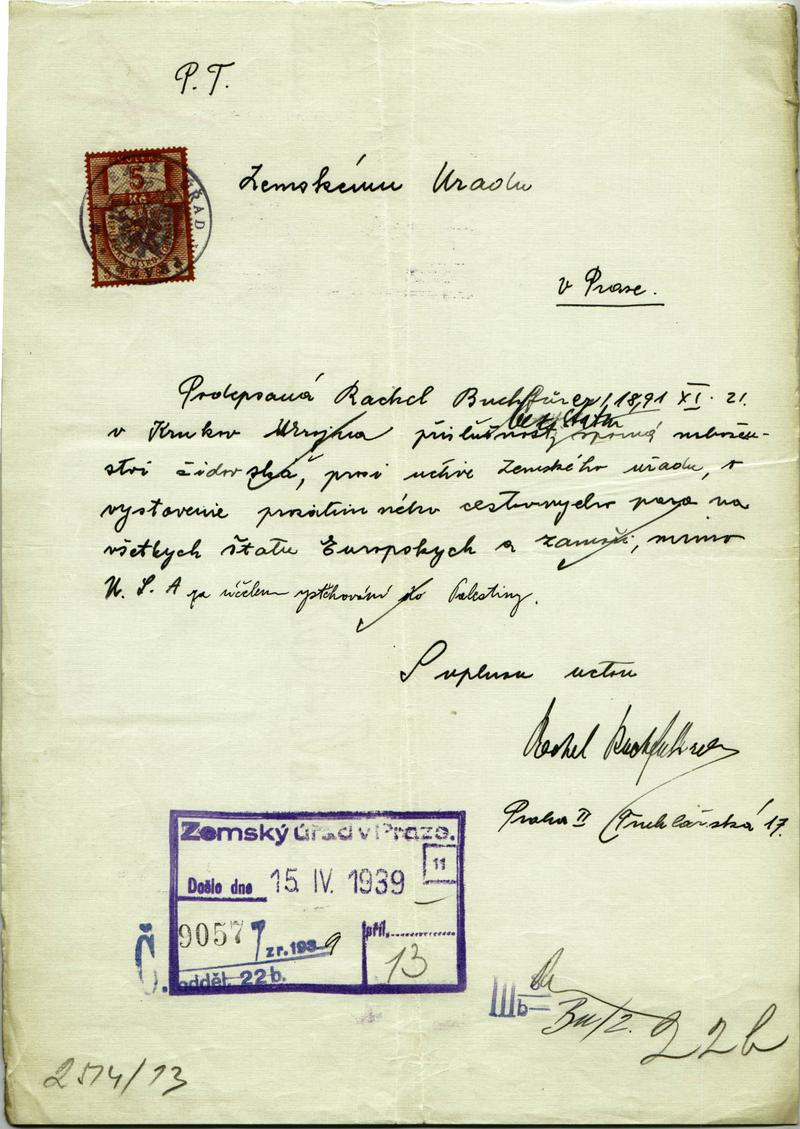 P. T.
5
Kč
ÚŘAD
Zemskému Uradu
v Praze.
Podepsaná Rachel Buchfürer, 1891 XI. 21.
bez státu
v Krukov Ukrajina příslušnost sporná nábožen-
ství židovská, prosí uctivě Zemského uřadu, o
vystavenie prozatimného cestovnyeho pasa na
všetkych štatu Europskych a zamoří, mimo
U. S. A za účelem vystěhování do Palestiny.
S uplnou uctou
Rachel Buchfuhrer
Praha II Truhlářská 17.
Zemský úřad v Praze.
11
Došlo dne 15. IV. 1939
Č. 90577 zr. 1939
příl.
13
oddět. 22b.
IIIb
22b
2514/13